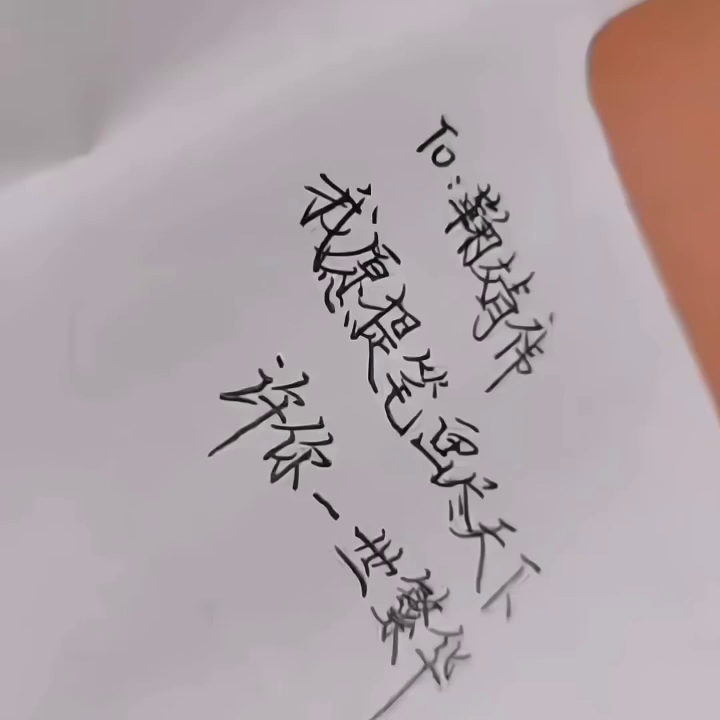 To:鞠婧祎
我愿提笔画尽天下
许你一世繁华